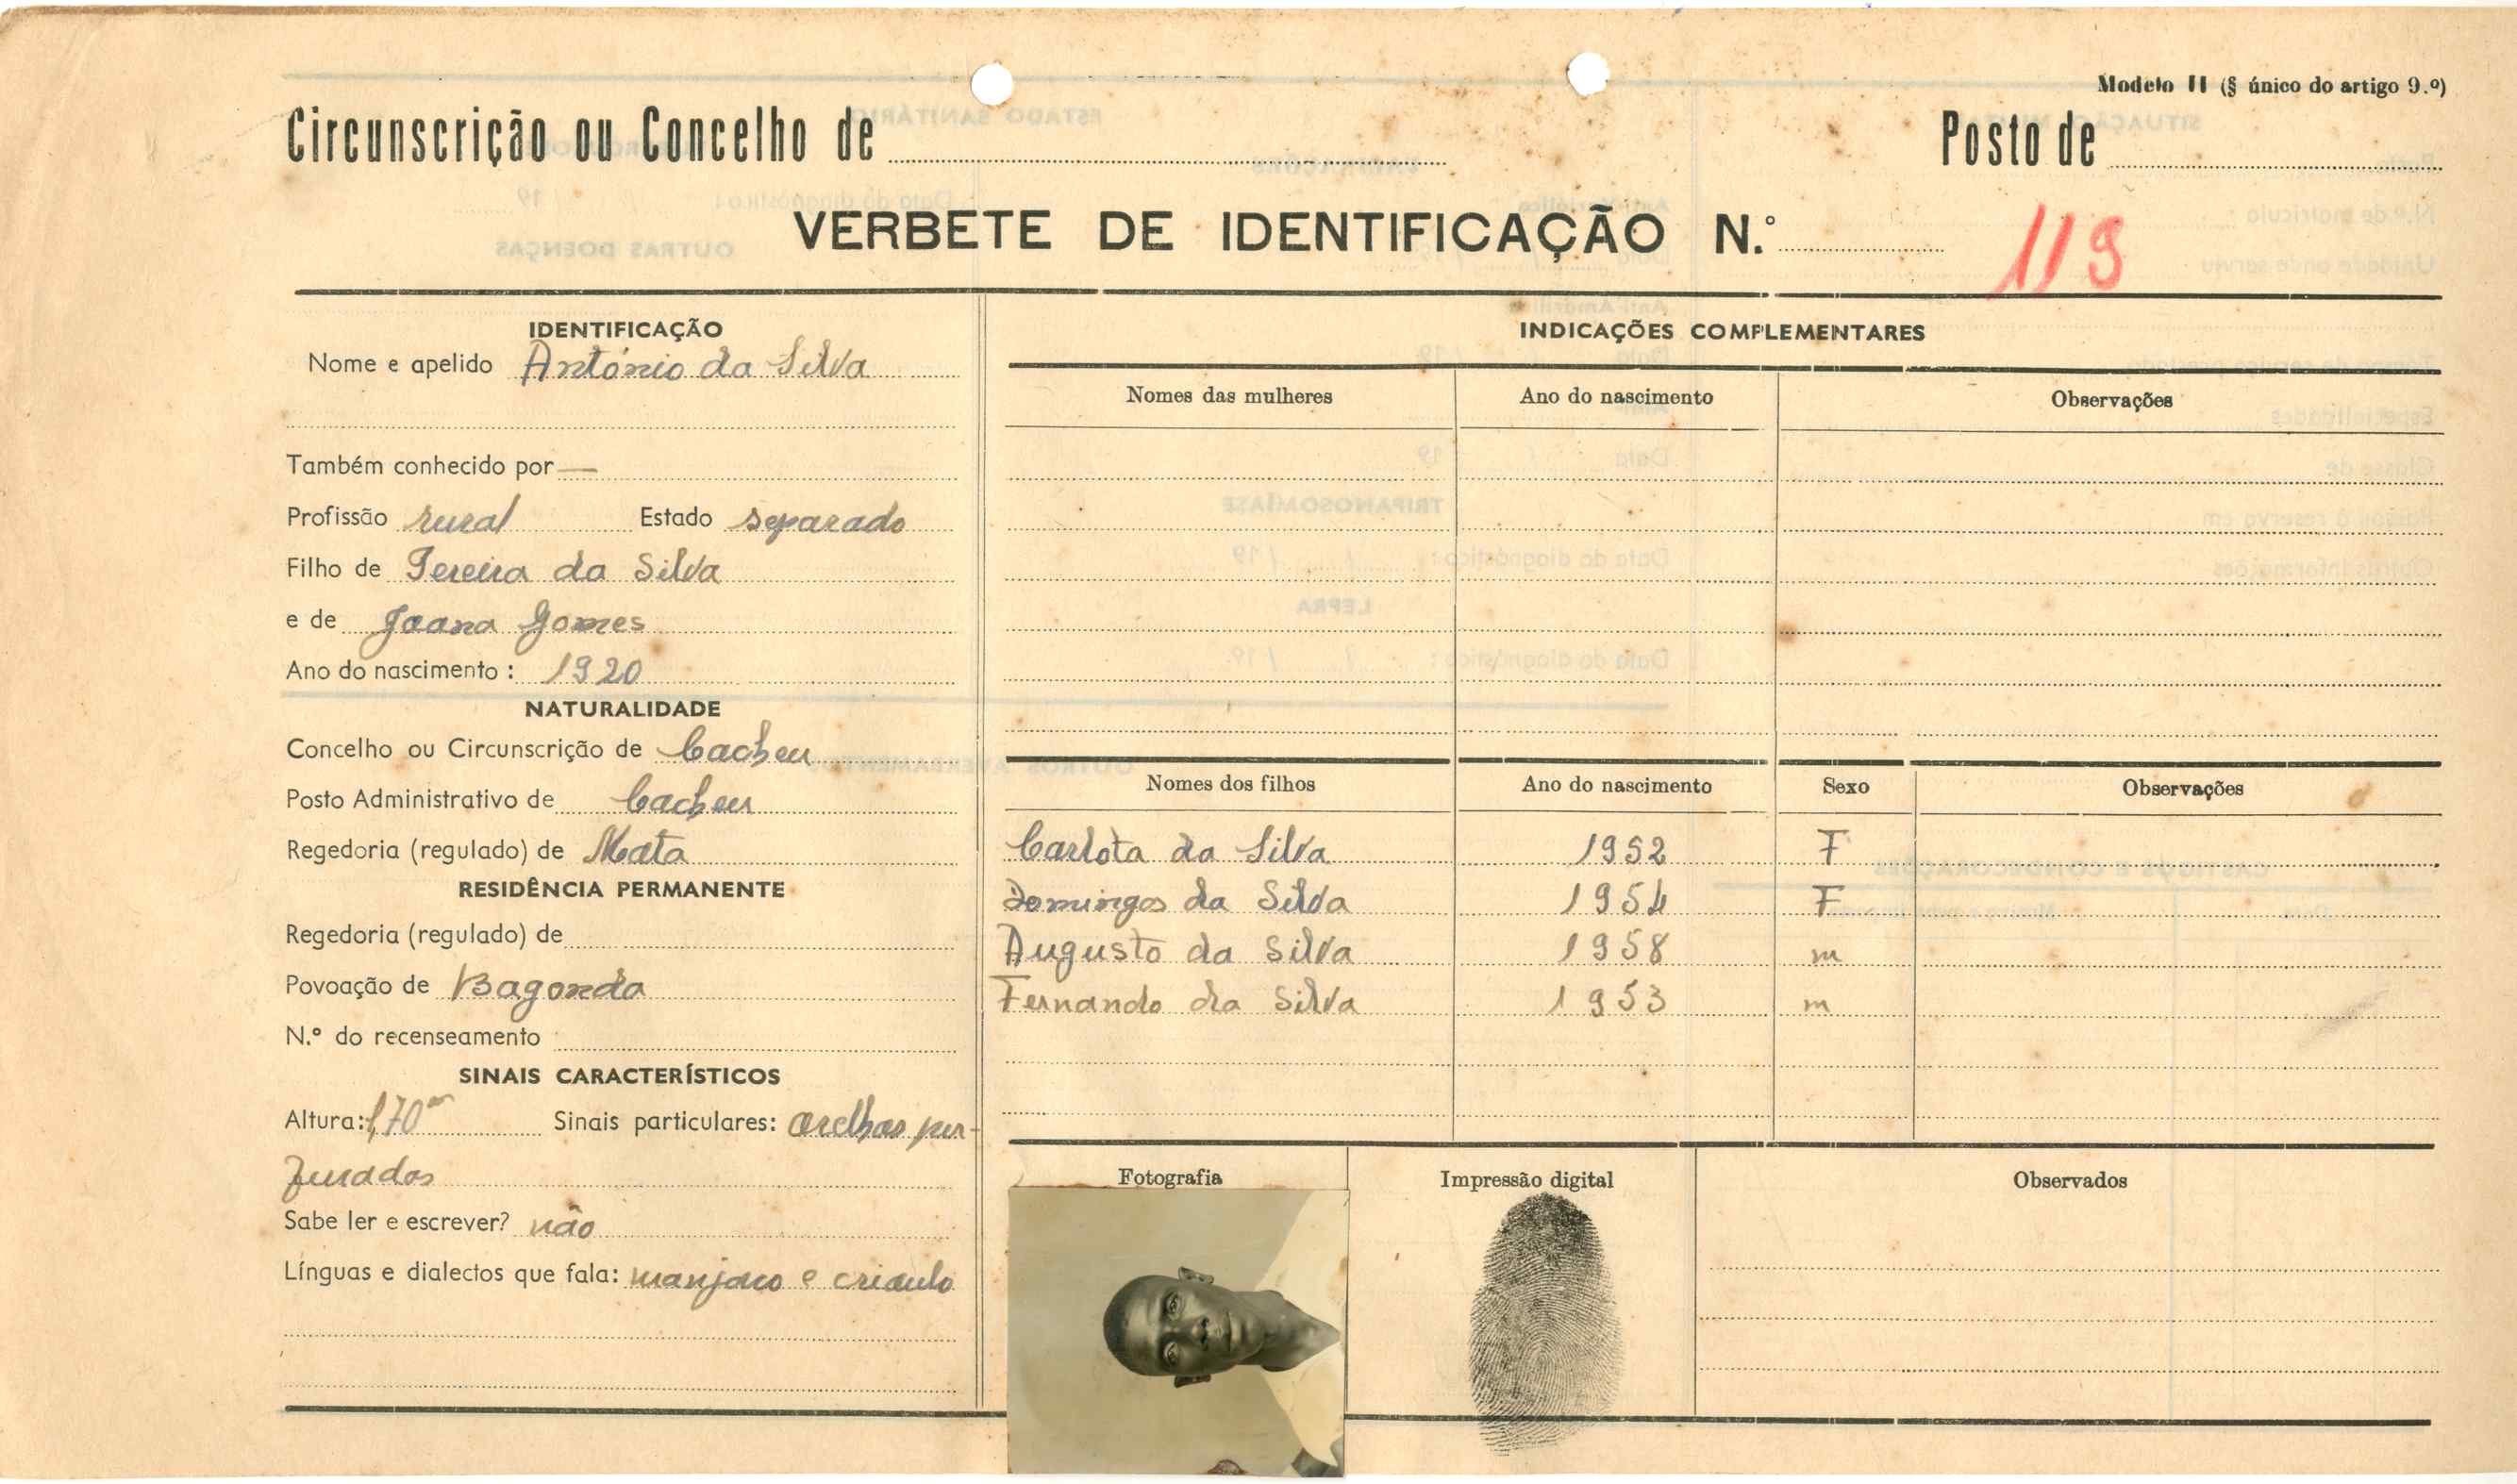 Modelo II (§ único do artigo 9.º)
Circunscrição ou Concelho de
Posto de
VERBETE DE IDENTIFICAÇÃO N.º 119
IDENTIFICAÇÃO
Nome e apelido António da Silva
Também conhecido por —
Profissão rural Estado separado
Filho de Pereira da Silva
e de Joana Gomes
Ano do nascimento : 1920
NATURALIDADE
Concelho ou Circunscrição de Cacheu
Posto Administrativo de Cacheu
Regedoria (regulado) de Mata
RESIDÊNCIA PERMANENTE
Regedoria (regulado) de
Povoação de Bagonda
N.º do recenseamento
SINAIS CARACTERÍSTICOS
Altura: 1,70m Sinais particulares: orelhas per-
furadas
Sabe ler e escrever? não
Línguas e dialectos que fala: manjaco e crioulo
INDICAÇÕES COMPLEMENTARES
Nomes das mulheres Ano do nascimento Observações
Nomes dos filhos Ano do nascimento Sexo Observações
Carlota da Silva 1952 F
Domingas da Silva 1954 F
Augusto da Silva 1958 m
Fernando da Silva 1953 m
Fotografia Impressão digital Observados